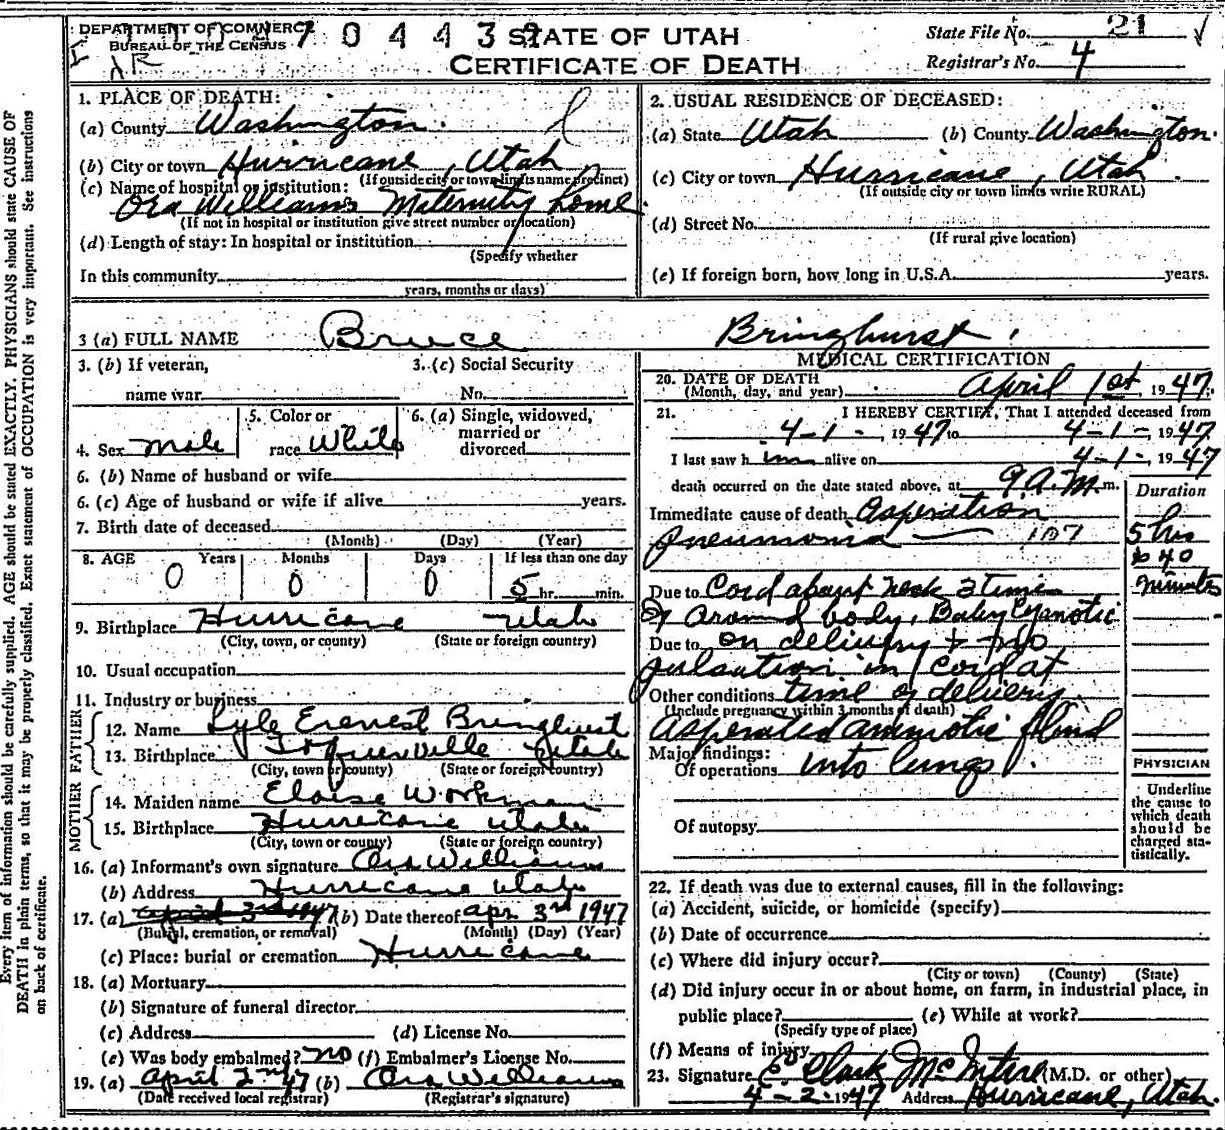 DEPARTMENT OF COMMERCE
BUREAU OF THE CENSUS
7 0 4 4 3
STATE OF UTAH
CERTIFICATE OF DEATH
State File No. 21
Registrar's No. 4
1. PLACE OF DEATH:
(a) County Washington.
(b) City or town Hurricane, Utah
(If outside city or town limits name precinct)
(c) Name of hospital or institution:
Ora Williams Maternity home
(If not in hospital or institution give street number or location)
(d) Length of stay: In hospital or institution
(Specify whether
In this community
years, months or days)
2. USUAL RESIDENCE OF DECEASED:
(a) State Utah (b) County Washington.
(c) City or town Hurricane, Utah.
(If outside city or town limits write RURAL)
(d) Street No.
(If rural give location)
(e) If foreign born, how long in U.S.A. years.
3 (a) FULL NAME Bruce Bringhurst.
3. (b) If veteran,
name war
3. (c) Social Security
No.
4. Sex male
5. Color or
race White
6. (a) Single, widowed,
married or
divorced
6. (b) Name of husband or wife
6. (c) Age of husband or wife if alive years.
7. Birth date of deceased
(Month) (Day) (Year)
8. AGE Years Months Days If less than one day
0 0 0 5 hr. min.
9. Birthplace Hurricane Utah
(City, town, or county) (State or foreign country)
10. Usual occupation
11. Industry or business
FATHER
12. Name Lyle Everest Bringhurst
13. Birthplace Toquerville Utah
(City, town or county) (State or foreign country)
MOTHER
14. Maiden name Eloise Workman
15. Birthplace Hurricane Utah
(City, town or county) (State or foreign country)
16. (a) Informant's own signature Ora Williams
(b) Address Hurricane Utah
17. (a) April 3rd 1947 (b) Date thereof Apr 3rd 1947
(Burial, cremation, or removal) (Month) (Day) (Year)
(c) Place: burial or cremation Hurricane
18. (a) Mortuary
(b) Signature of funeral director
(c) Address (d) License No.
(e) Was body embalmed? no (f) Embalmer's License No.
19. (a) April 2nd 47 (b) Ora Williams
(Date received local registrar) (Registrar's signature)
MEDICAL CERTIFICATION
20. DATE OF DEATH
(Month, day, and year) April 1st, 1947.
21. I HEREBY CERTIFY, That I attended deceased from
4-1-, 1947 to 4-1-, 1947
I last saw h im alive on 4-1-, 1947
death occurred on the date stated above, at 9 A.M. m.
Duration
Immediate cause of death Asperation
pneumonia 107
5 hrs
& 40
minutes
Due to Cord about neck 3 times
& Around body, Baby Cyanotic
Due to on delivery + no
pulsation in cord at
Other conditions time of delivery.
(Include pregnancy within 3 months of death)
Asperated amniotic fluid
Major findings:
Of operations into lungs.
Of autopsy
PHYSICIAN
Underline
the cause to
which death
should be
charged sta-
tistically.
22. If death was due to external causes, fill in the following:
(a) Accident, suicide, or homicide (specify)
(b) Date of occurrence
(c) Where did injury occur?
(City or town) (County) (State)
(d) Did injury occur in or about home, on farm, in industrial place, in
public place? (e) While at work?
(Specify type of place)
(f) Means of injury
23. Signature Clark McIntire (M.D. or other)
4-2-1947 Address Hurricane, Utah.
Every item of information should be carefully supplied. AGE should be stated EXACTLY. PHYSICIANS should state CAUSE OF
DEATH in plain terms, so that it may be properly classified. Exact statement of OCCUPATION is very important. See instructions
on back of certificate.